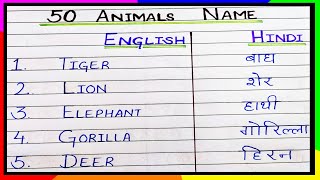 50 Animals Name
English Hindi
1. Tiger बाघ
2. Lion शेर
3. Elephant हाथी
4. Gorilla गोरिल्ला
5. Deer हिरन